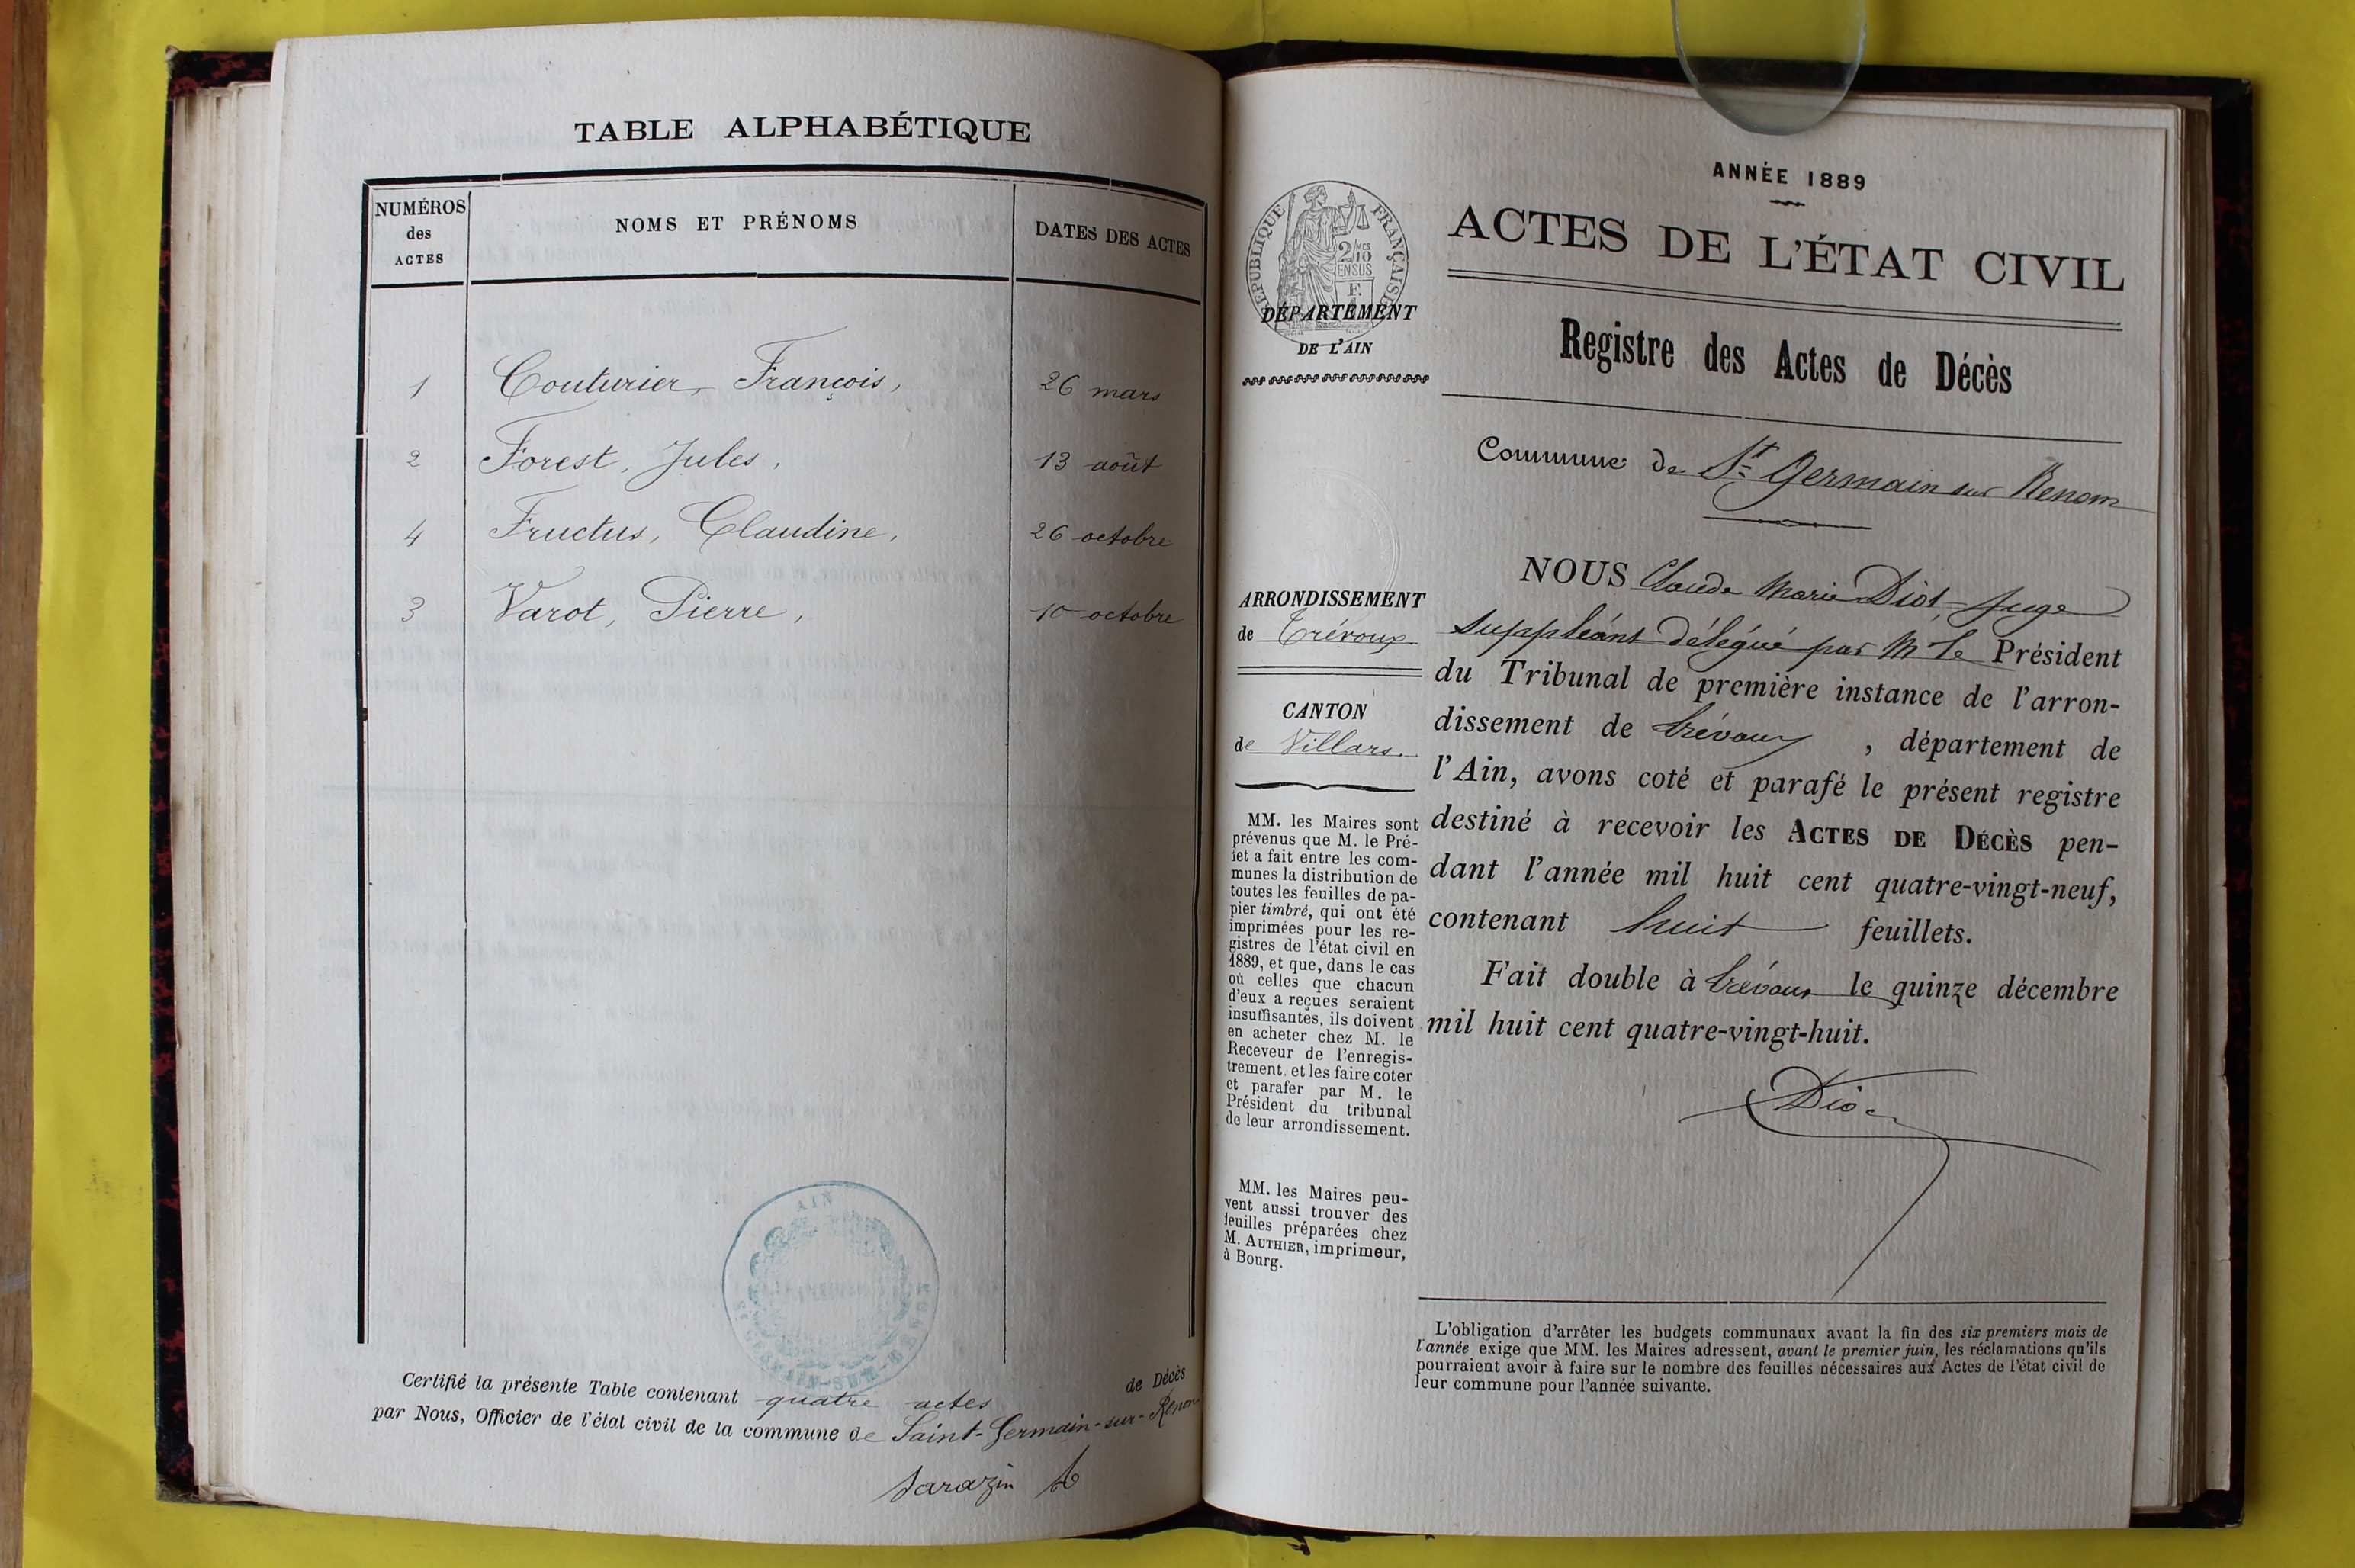 TABLE ALPHABÉTIQUE
NUMÉROS
des
ACTES
NOMS ET PRÉNOMS
DATES DES ACTES
1 Couturier, François, 26 mars
2 Forest, Jules, 13 août
4 Fructus, Claudine, 26 octobre
3 Varot, Pierre, 10 octobre
AIN
Certifié la présente Table contenant quatre actes de Décès
par Nous, Officier de l'état civil de la commune de Saint-Germain-sur-Renon
Sarazin
ANNÉE 1889
ACTES DE L'ÉTAT CIVIL
Registre des Actes de Décès
RÉPUBLIQUE FRANÇAISE
2/10
EN SUS
DÉPARTEMENT
DE L'AIN
Commune de St Germain sur Renom
ARRONDISSEMENT
de Trévoux
CANTON
de Villars.
MM. les Maires sont
prévenus que M. le Pré-
fet a fait entre les com-
munes la distribution de
toutes les feuilles de pa-
pier timbré, qui ont été
imprimées pour les re-
gistres de l'état civil en
1889, et que, dans le cas
où celles que chacun
d'eux a reçues seraient
insuffisantes, ils doivent
en acheter chez M. le
Receveur de l'enregis-
trement, et les faire coter
et parafer par M. le
Président du tribunal
de leur arrondissement.
MM. les Maires peu-
vent aussi trouver des
feuilles préparées chez
M. AUTHIER, imprimeur,
à Bourg.
NOUS Claude Marie Diot, Juge
Suppléant délégué par M le Président
du Tribunal de première instance de l'arron-
dissement de Trévoux, département de
l'Ain, avons coté et parafé le présent registre
destiné à recevoir les ACTES DE DÉCÈS pen-
dant l'année mil huit cent quatre-vingt-neuf,
contenant huit feuillets.
Fait double à Trévoux le quinze décembre
mil huit cent quatre-vingt-huit.
Diot
L'obligation d'arrêter les budgets communaux avant la fin des six premiers mois de
l'année exige que MM. les Maires adressent, avant le premier juin, les réclamations qu'ils
pourraient avoir à faire sur le nombre des feuilles nécessaires aux Actes de l'état civil de
leur commune pour l'année suivante.